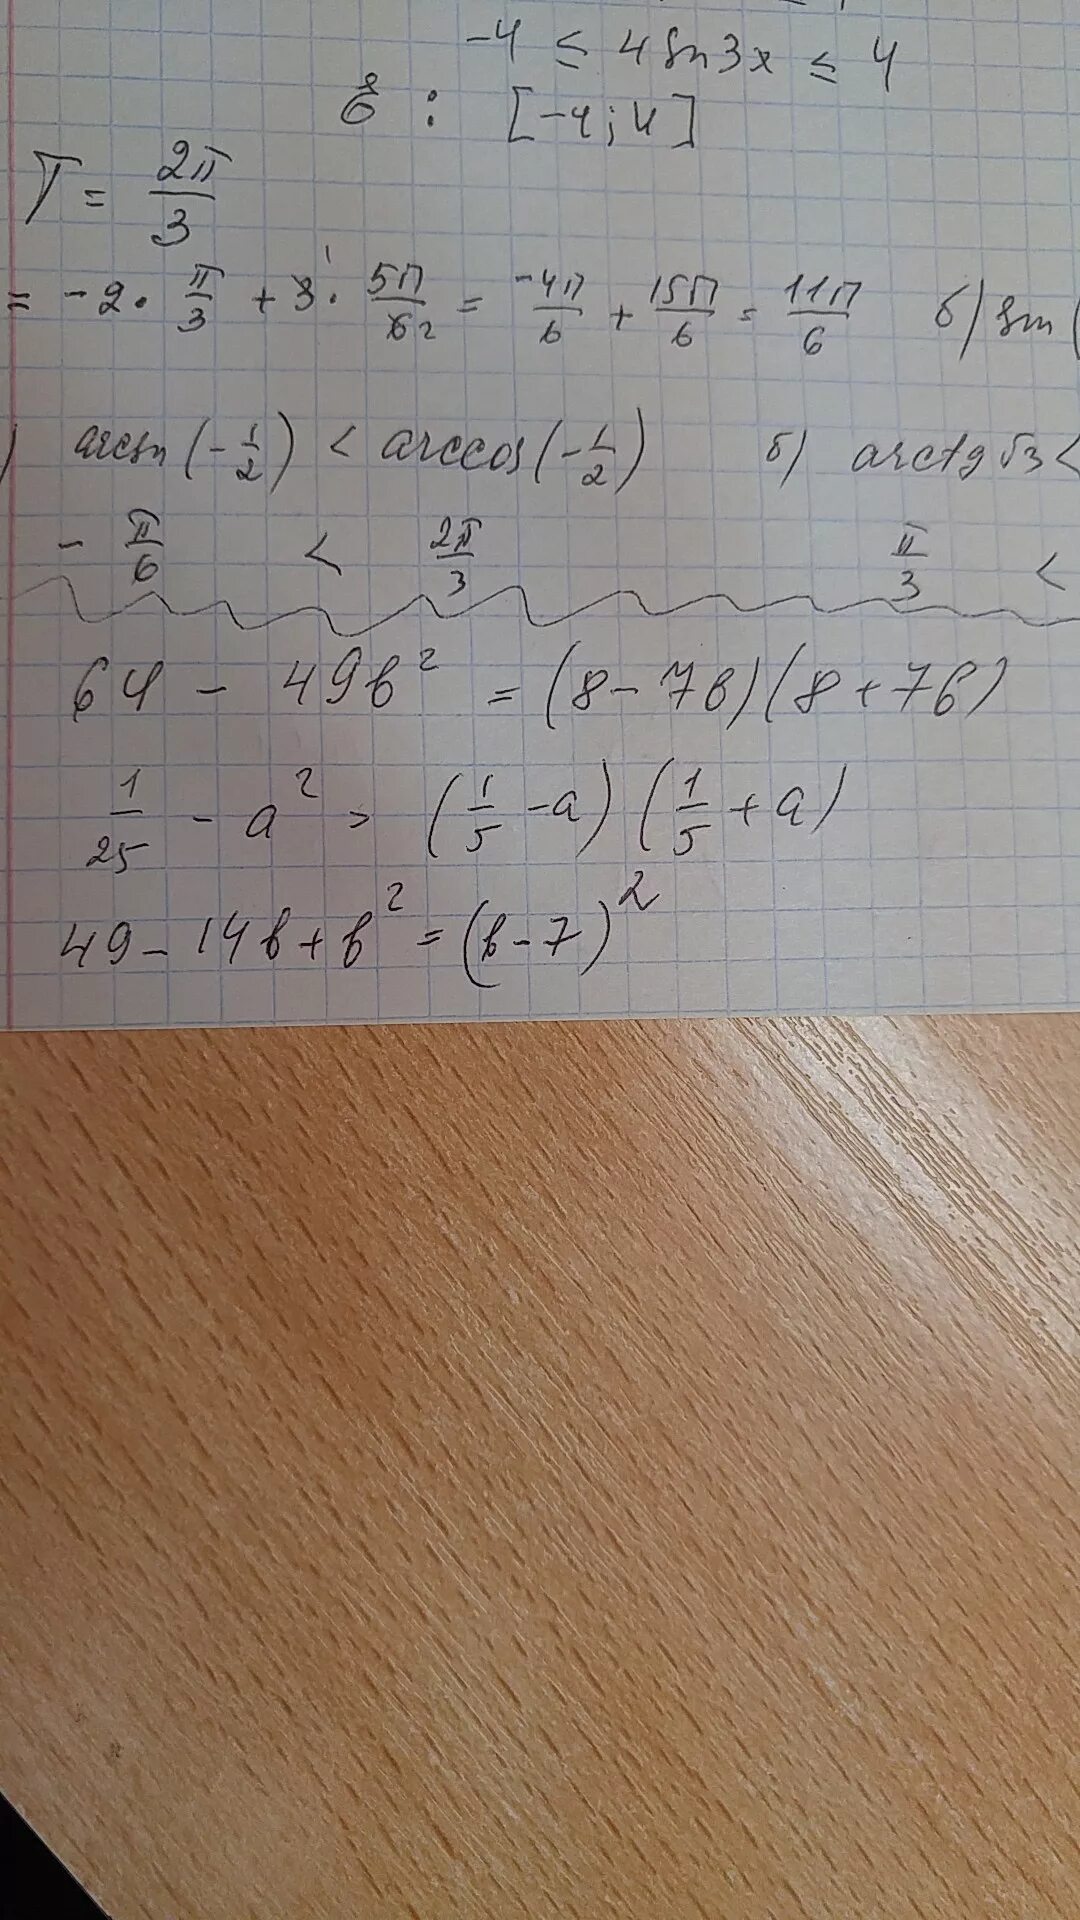 -4 ≤ 4sin3x ≤ 4
: [-4; 4]
T = 2π/3
= -2 · π/3 + 3 · 5π/6 = -4π/6 + 15π/6 = 11π/6 б) sin (
) arcsin (-1/2) < arccos (-1/2) б) arctg √3 <
- π/6 < 2π/3 π/3 <
64 - 49b² = (8 - 7b)(8 + 7b)
1/25 - a² = (1/5 - a)(1/5 + a)
49 - 14b + b² = (b - 7)²